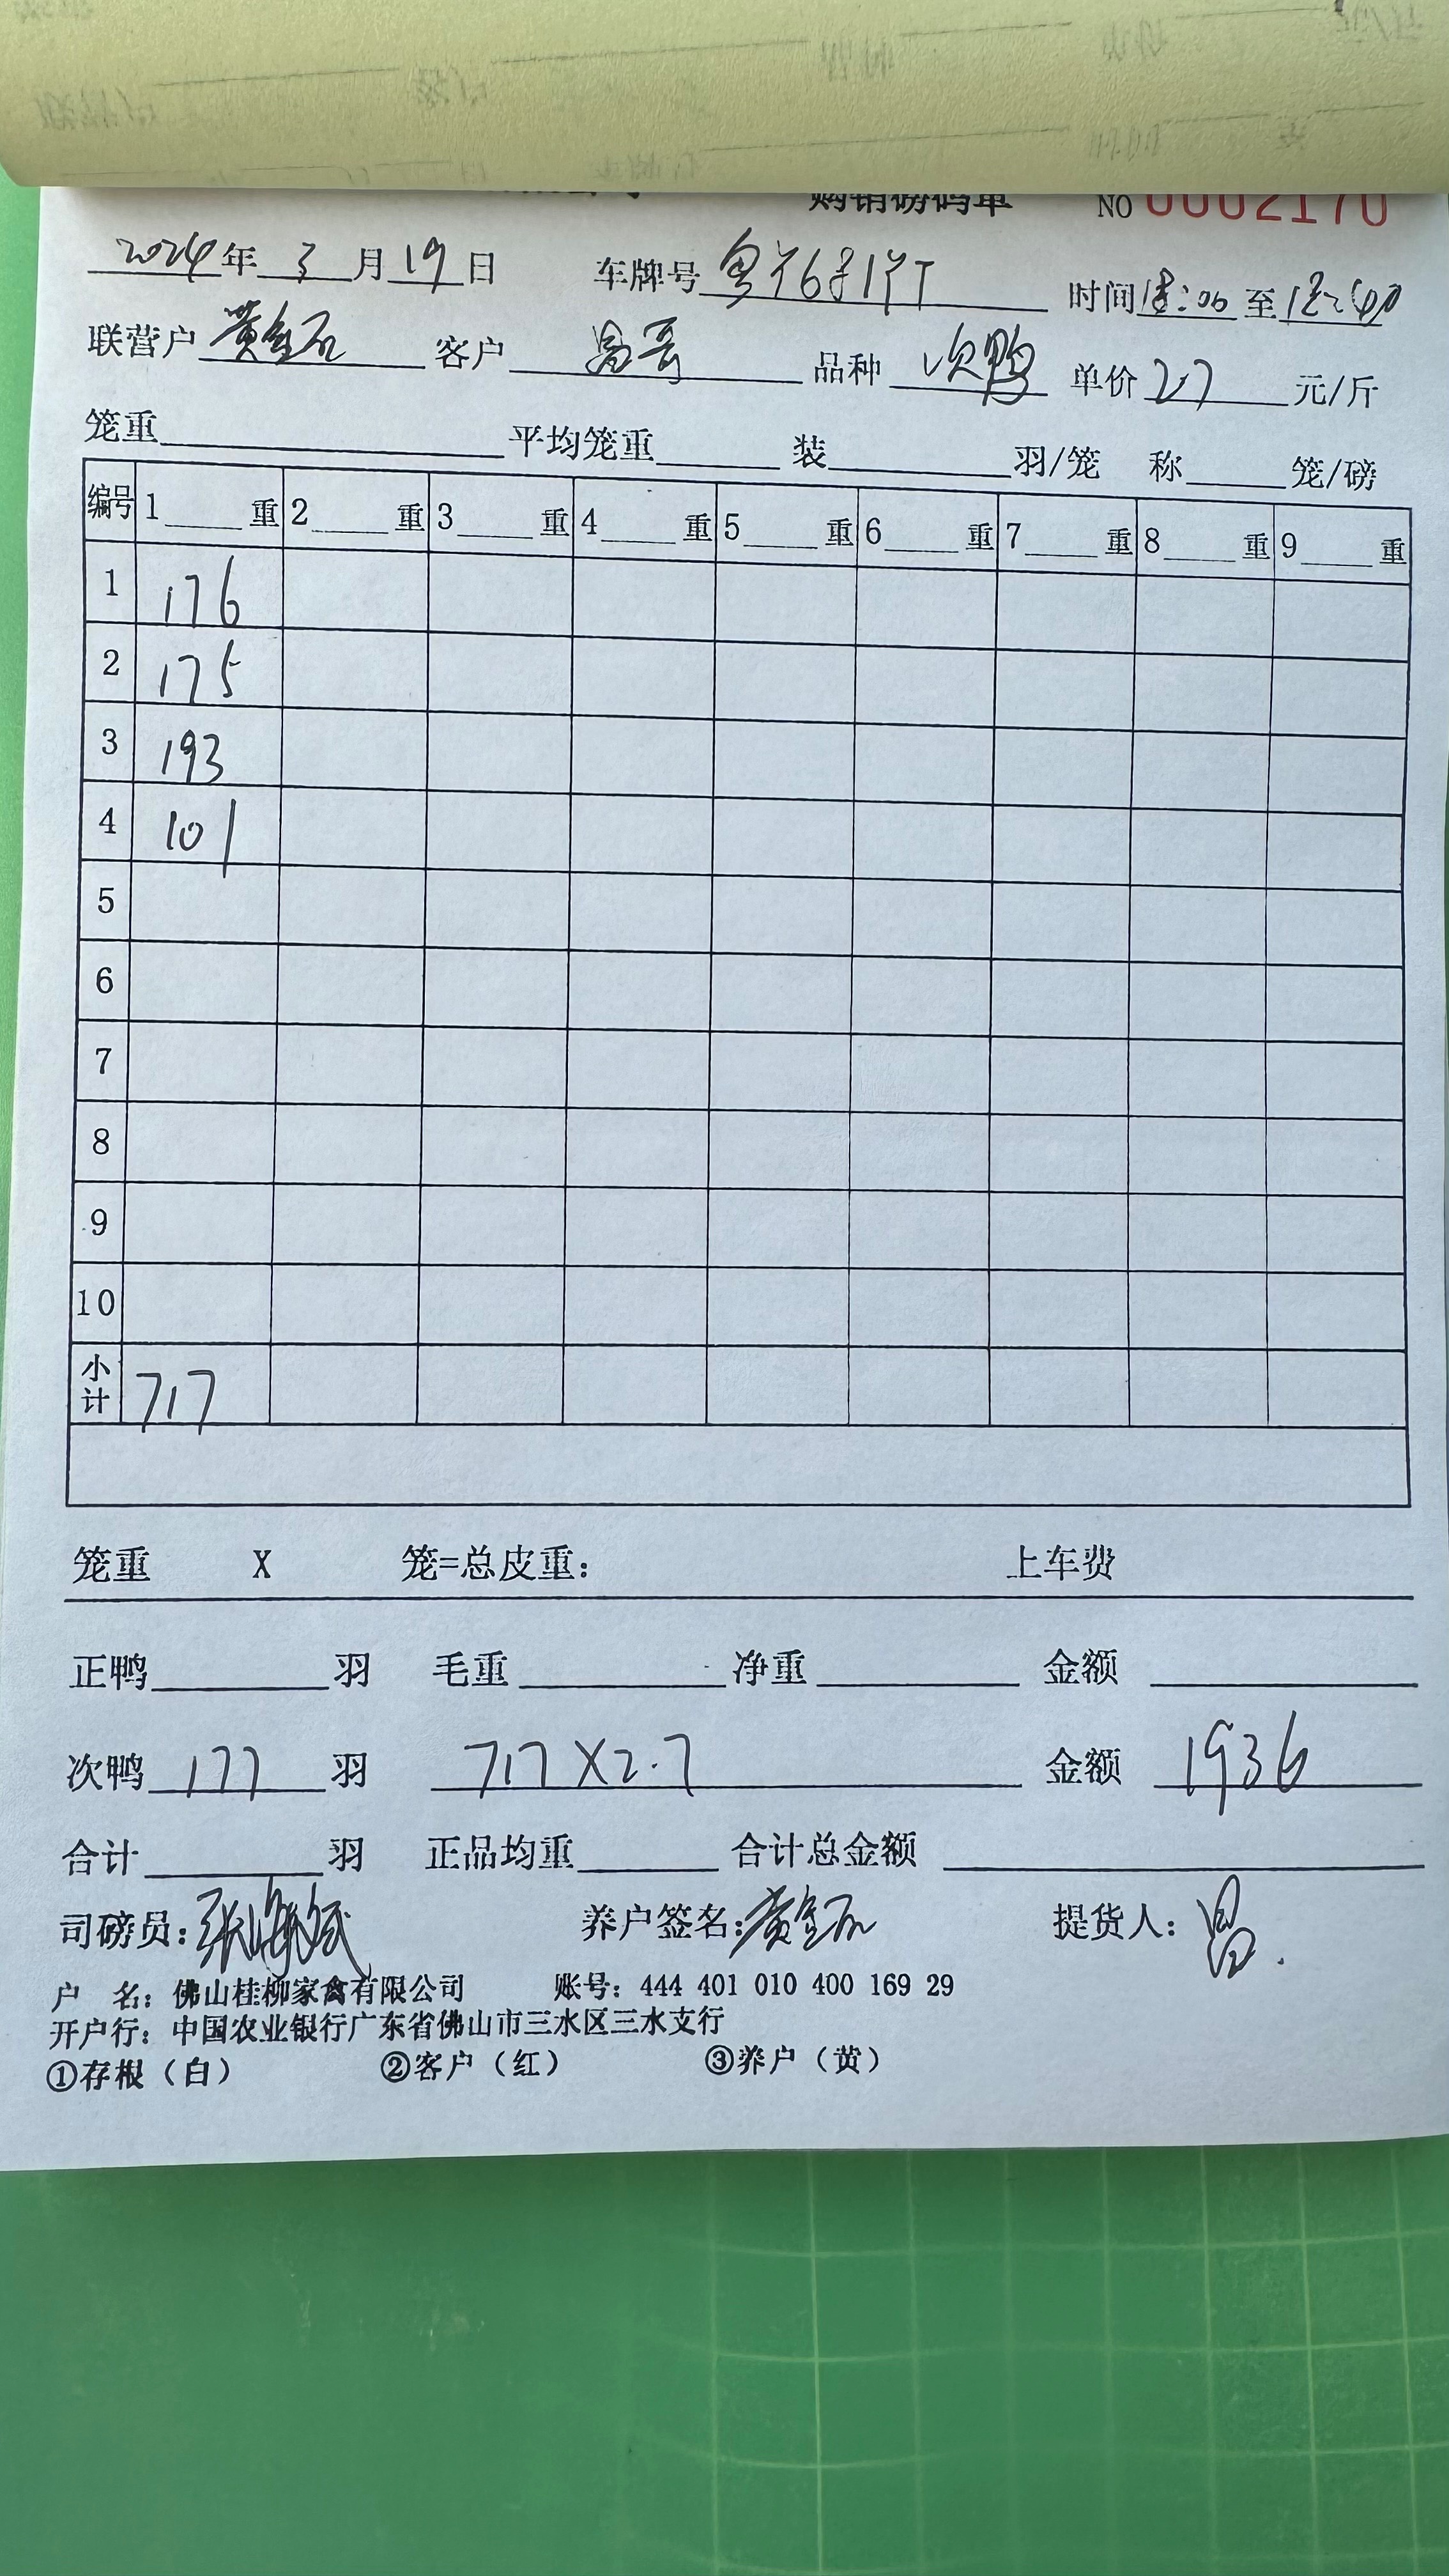 购销磅码单 NO 0002170
2024年 3 月 19 日 车牌号 时间 18:06 至 18:40
联营户 黄金石 客户 昌哥 品种 次鸭 单价 2.7 元/斤
笼重 平均笼重 装 羽/笼 称 笼/磅
编号 1 重 2 重 3 重 4 重 5 重 6 重 7 重 8 重 9 重
1 176
2 175
3 193
4 101
5
6
7
8
9
10
小计 717
笼重 X 笼=总皮重: 上车费
正鸭 羽 毛重 净重 金额
次鸭 177 羽 717X2.7 金额 1936
合计 羽 正品均重 合计总金额
司磅员: 养户签名: 黄金石 提货人: 昌
户 名: 佛山桂柳家禽有限公司 账号: 444 401 010 400 169 29
开户行: 中国农业银行广东省佛山市三水区三水支行
①存根（白） ②客户（红） ③养户（黄）